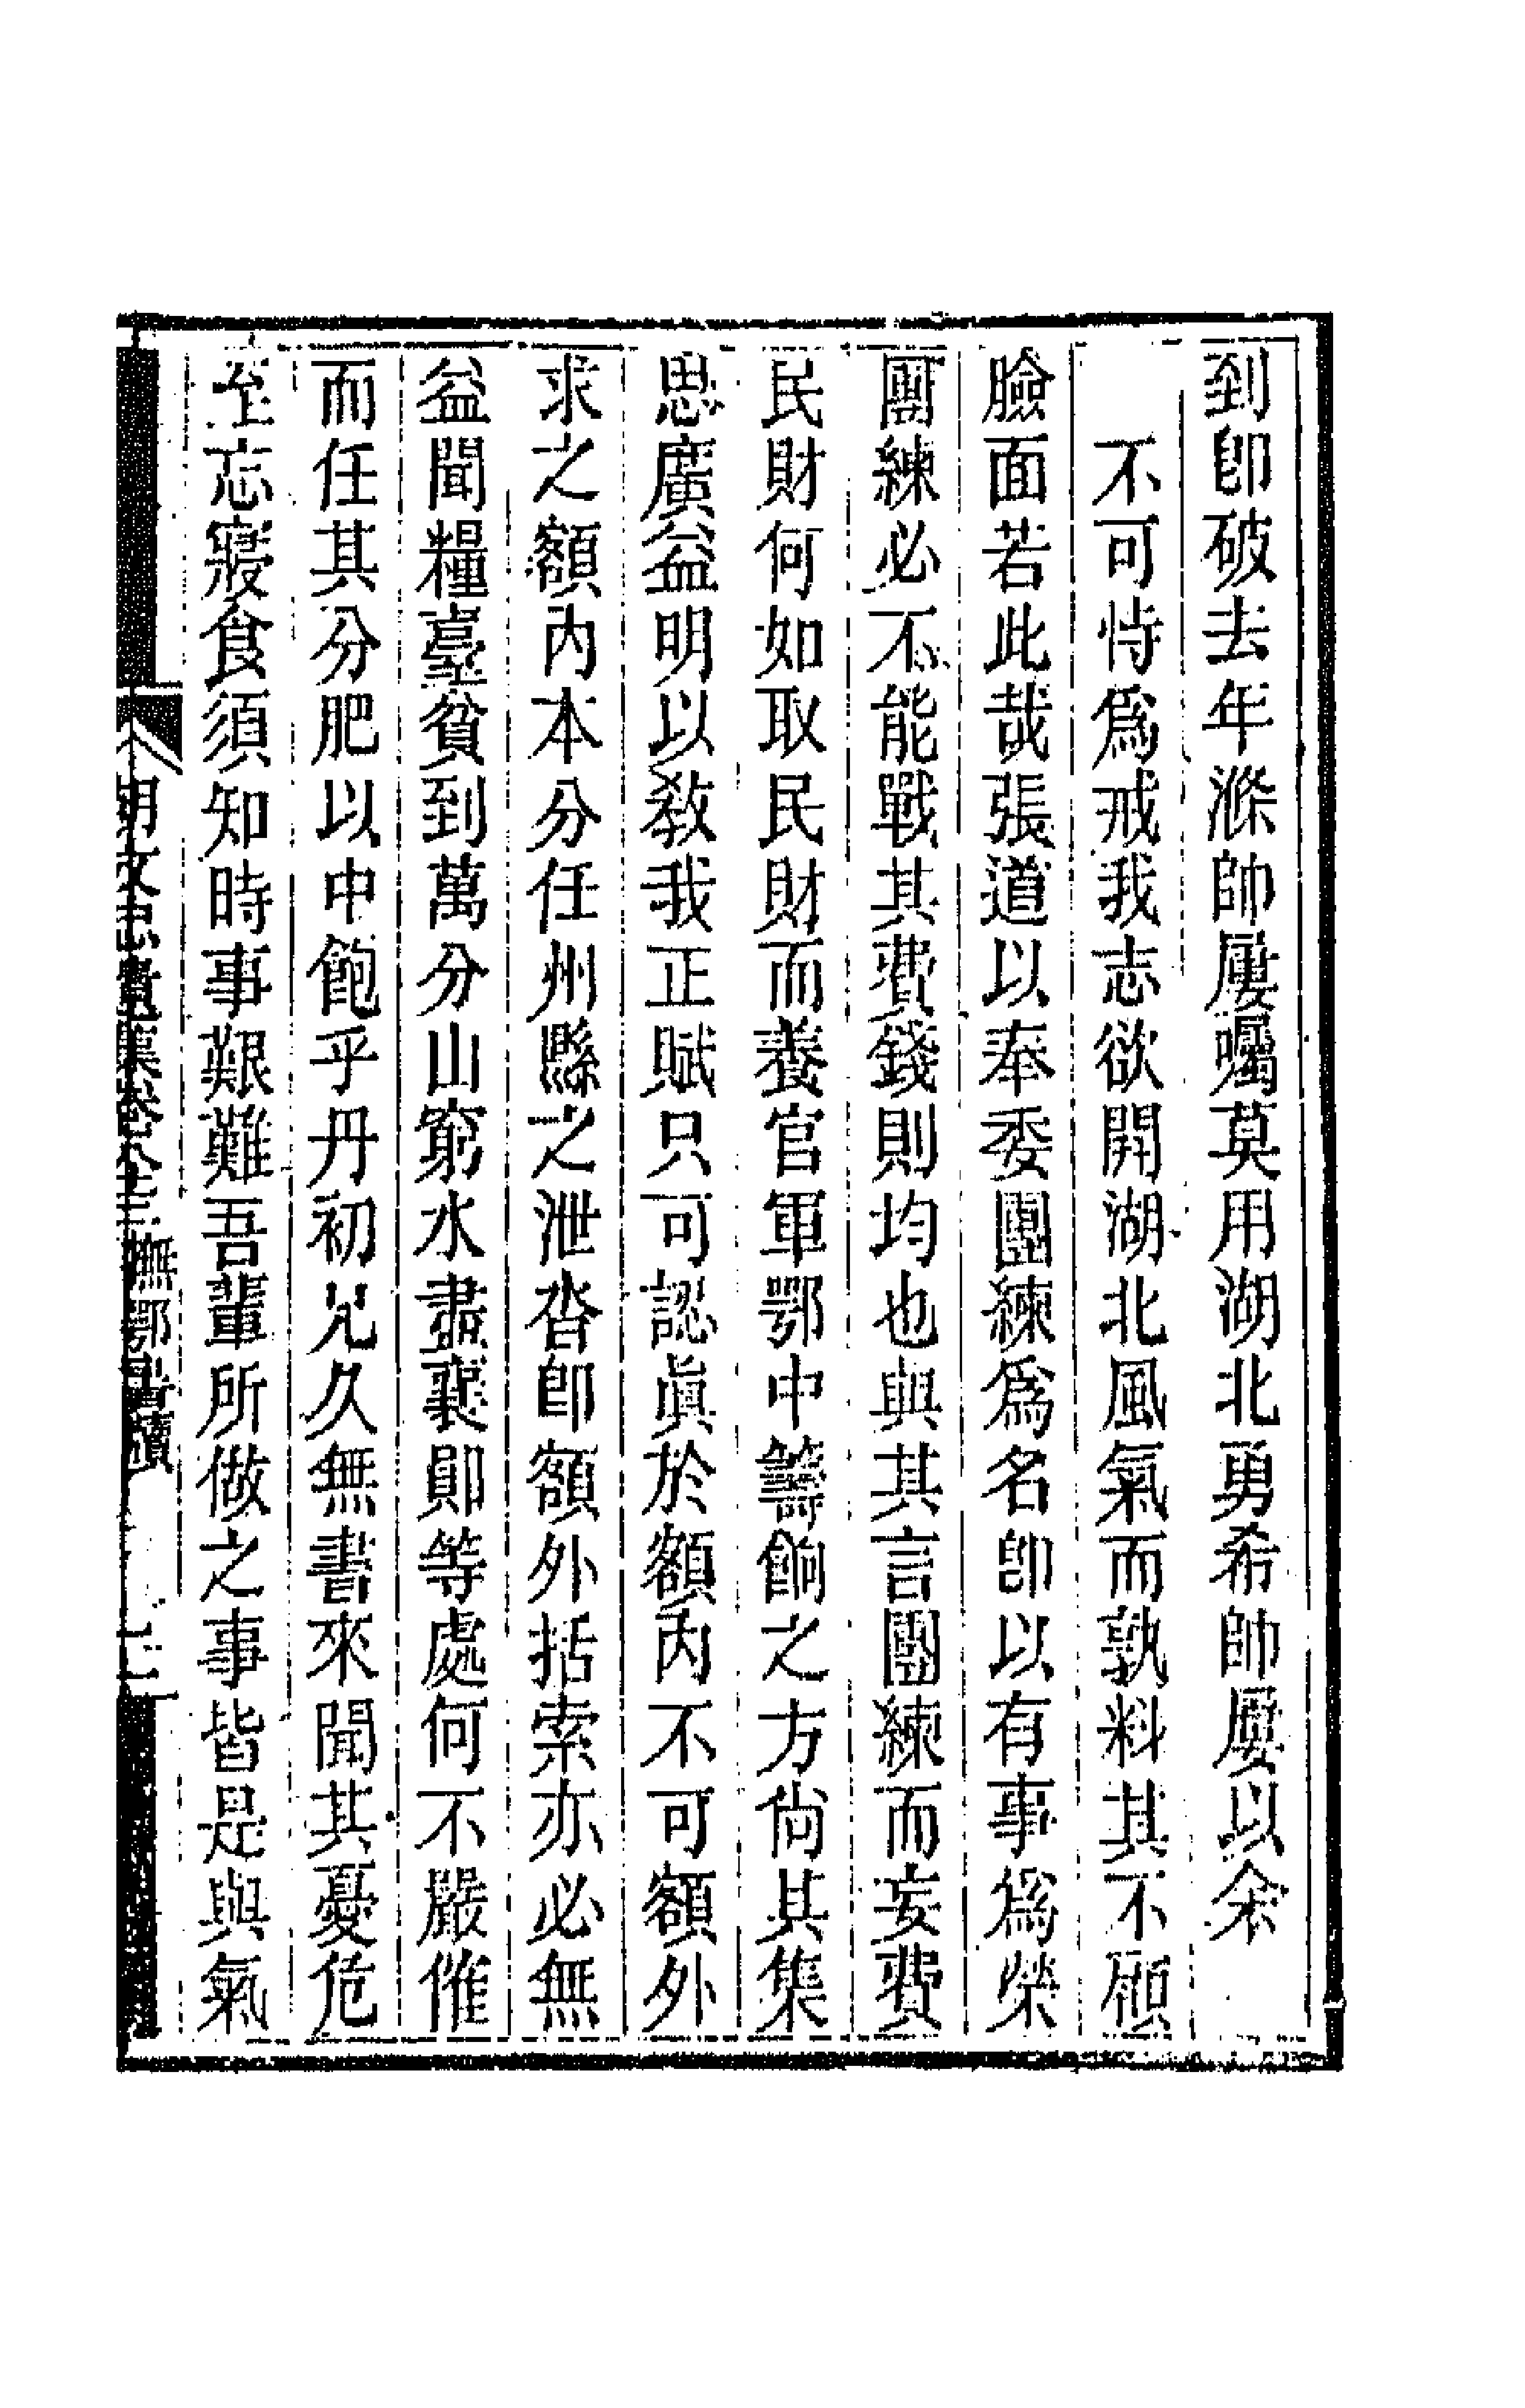 到卽破去年滌帥屢囑莫用湖北勇希帥屢以余
不可恃爲戒我志欲開湖北風氣而孰料其不顧
臉面若此哉張道以奉委團練爲名卽以有事爲榮
團練必不能戰其費錢則均也與其言團練而妄費
民財何如取民財而養官軍鄂中籌餉之方尙其集
思廣益明以敎我正賦只可認眞於額內不可額外
求之額內本分任州縣之泄沓卽額外括索亦必無
益聞糧臺貧到萬分山窮水盡襄鄖等處何不嚴催
而任其分肥以中飽乎丹初兄久無書來聞其憂危
至忘寢食須知時事艱難吾輩所做之事皆是與氣
胡文忠遺集卷六十三 撫鄂書牘